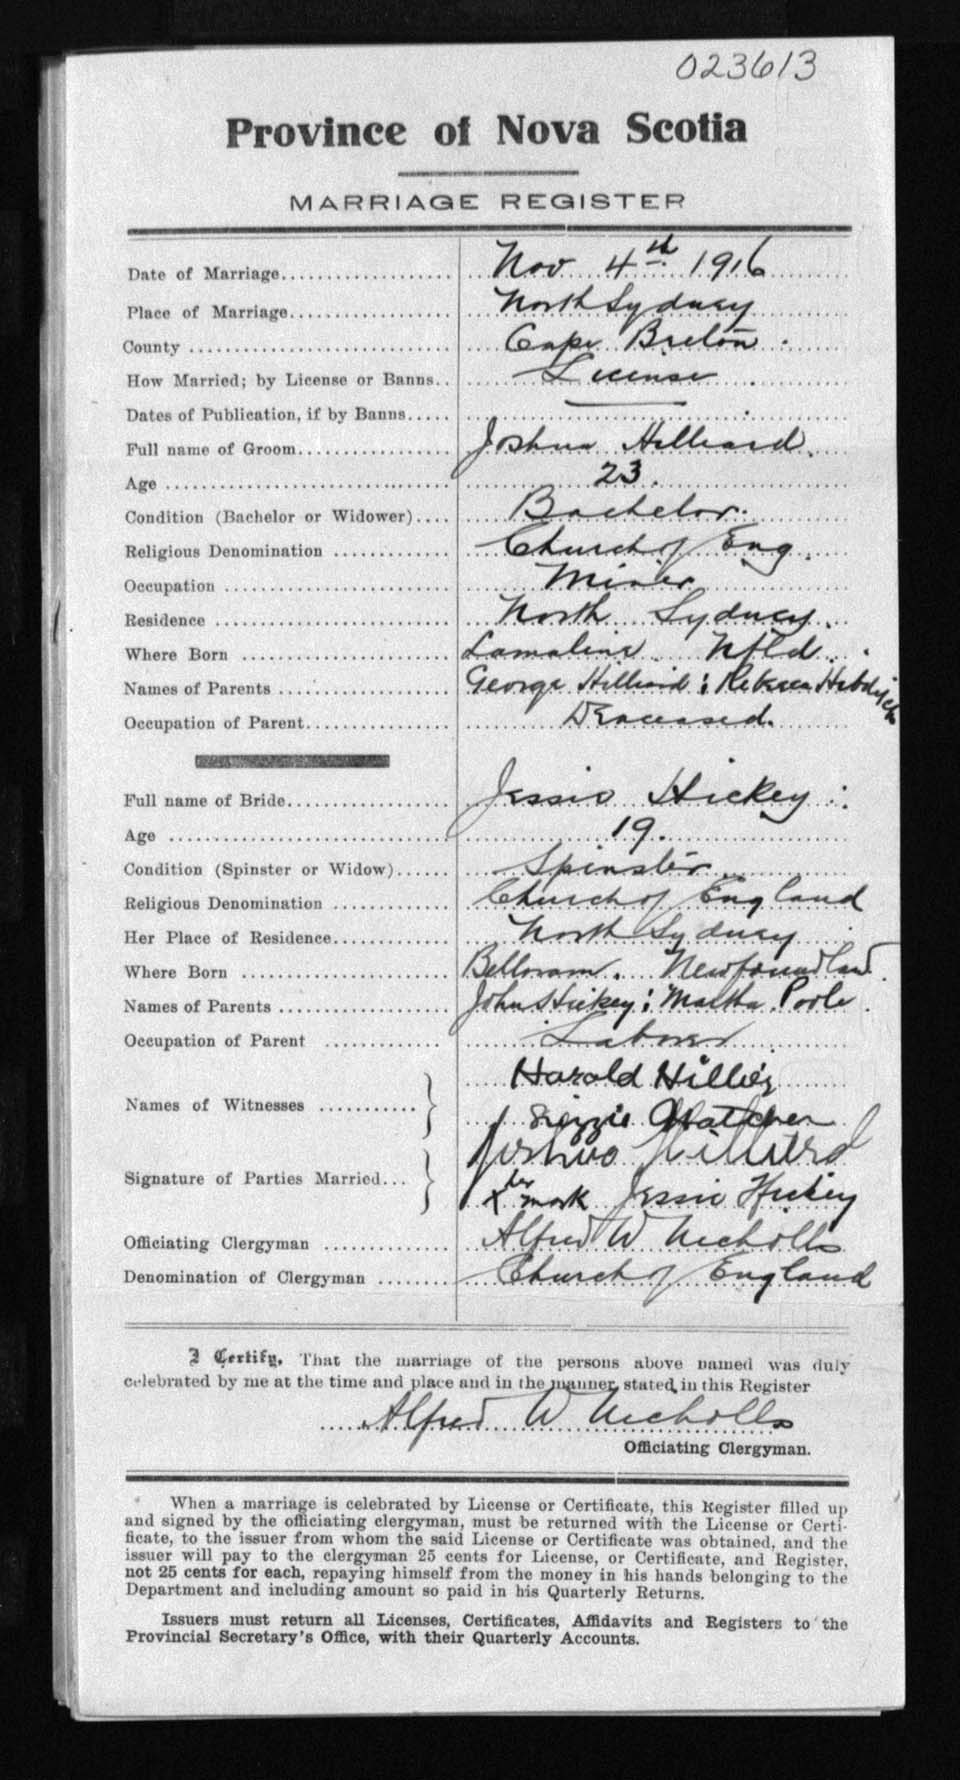 023613
Province of Nova Scotia
MARRIAGE REGISTER
Date of Marriage Nov 4th 1916
Place of Marriage North Sydney
County Cape Breton.
How Married; by License or Banns License.
Dates of Publication, if by Banns
Full name of Groom Joshua Hilliard.
Age 23.
Condition (Bachelor or Widower) Bachelor.
Religious Denomination Church of Eng.
Occupation Miner
Residence North Sydney.
Where Born Lamaline Nfld.
Names of Parents George Hilliard:
Occupation of Parent Deceased.
Full name of Bride Jessie Hickey:
Age 19.
Condition (Spinster or Widow) Spinster
Religious Denomination Church of England
Her Place of Residence North Sydney
Where Born Belloram. Newfoundland.
Names of Parents John Hickey: Martha Poole.
Occupation of Parent Laborer
Harold Hillier
Names of Witnesses Lizzie
Joshua Hilliard
Signature of Parties Married X her mark Jessie Hickey
Officiating Clergyman Alfred W Nicholls
Denomination of Clergyman Church of England
I Certify, That the marriage of the persons above named was duly
celebrated by me at the time and place and in the manner stated in this Register
Alfred W Nicholls
Officiating Clergyman.
When a marriage is celebrated by License or Certificate, this Register filled up
and signed by the officiating clergyman, must be returned with the License or Certi-
ficate, to the issuer from whom the said License or Certificate was obtained, and the
issuer will pay to the clergyman 25 cents for License, or Certificate, and Register,
not 25 cents for each, repaying himself from the money in his hands belonging to the
Department and including amount so paid in his Quarterly Returns.
Issuers must return all Licenses, Certificates, Affidavits and Registers to the
Provincial Secretary's Office, with their Quarterly Accounts.